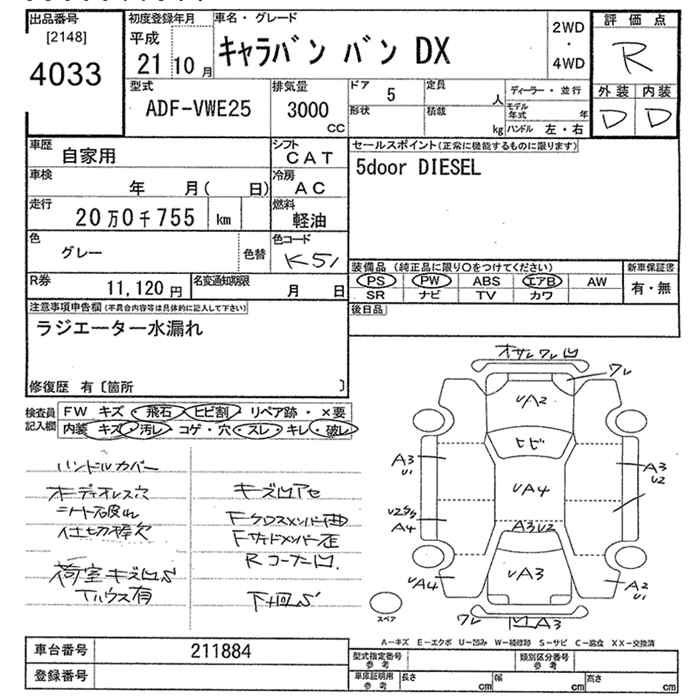 出品番号
[2148]
4033
初度登録年月
平成
21 10 月
車名・グレード
キャラバン バン DX
2WD
・
4WD
評価点
R
外装 内装
D D
型式
ADF-VWE25
排気量
3000
CC
ドア 5
形状
定員 人
積載 kg
ディーラー・並行
モデル年式 年
ハンドル 左・右
車歴 自家用
シフト CAT
車検 年 月( 日)
冷房 AC
走行 20万0千755 km
燃料 軽油
色 グレー 色替
色コード K51
R券 11,120 円
名変通知期限 月 日
セールスポイント(正常に機能するものに限ります)
5door DIESEL
装備品 (純正品に限り○をつけてください)
PS PW ABS エアB AW
SR ナビ TV カワ
新車保証書
有・無
後日品
注意事項申告欄(不具合内容等は具体的に記入して下さい)
ラジエーター水漏れ
修復歴 有〔箇所 〕
検査員記入欄
FW キズ・飛石・ヒビ割・リペア跡・×要
内装 キズ・汚レ・コゲ・穴・スレ・キレ・破レ
ハンドルカバー
オーディオレス穴
シート破れ
仕切棒欠
荷室キズ凹S
下ハウス有
キズ凹アセ
Fクロスメンバー曲
Fサイドメンバー歪
Rコーナー凹.
下廻S
オサレワレ凹
ワレ
UA2
ヒビ
A3
U1
UA4
A3
U2
A4
A3U2
UA4
UA3
A2
U1
ワレ
凹A3
スペア
A-キズ E-エクボ U-凹み W-補修跡 S-サビ C-腐食 XX-交換済
車台番号 211884
登録番号
型式指定番号
参考
類別区分番号
参考
車庫証明用
参考
長さ cm
幅 cm
高さ cm